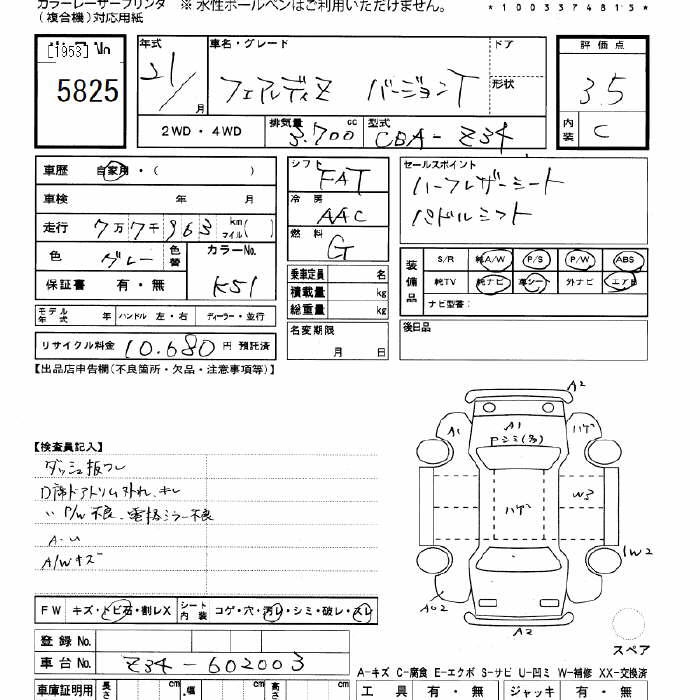 カラーレーザープリンタ ※ 水性ボールペンはご利用いただけません。
(複合機)対応用紙
*1003374815*
[1953]
5825
年式 21/ 月
車名・グレード ドア
フェアレディZ バージョンT 形状
2WD・4WD 排気量 3.700 cc 型式 CBA-Z34
評価点
3.5
内装 C
車歴 自家用・( )
車検 年 月
走行 7万7千963 km マイル( )
色 グレー 色替 カラーNo. K51
保証書 有・無
モデル年式 年 ハンドル 左・右 ディーラー・並行
リサイクル料金 10.680 円 預託済
シフト FAT
冷房 AAC
燃料 G
乗車定員 名
積載量 kg
総重量 kg
名変期限
月 日
セールスポイント
ハーフレザーシート
パドルシフト
装備品
S/R 純A/W P/S P/W ABS
純TV 純ナビ 革シート 外ナビ エアB
ナビ型番:
後日品
【出品店申告欄(不良箇所・欠品・注意事項等)】
【検査員記入】
ダッシュ板フレ
D席ドアトリム外れ、キレ
〃 P/W不良、電格ミラー不良
A-U
A/Wキズ
A2
A1
A1
Pシミ(多)
ハゲ
ハゲ
W3
1W2
AU2
A2
スペア
FW キズ・トビ石・割レX シート内装 コゲ・穴・汚レ・シミ・破レ・スレ
登録 No.
車台 No. Z34-602003
A-キズ C-腐食 E-エクボ S-サビ U-凹ミ W-補修 XX-交換済
車庫証明用 長さ cm ・幅 cm 高さ cm
工具 有・無 ジャッキ 有・無